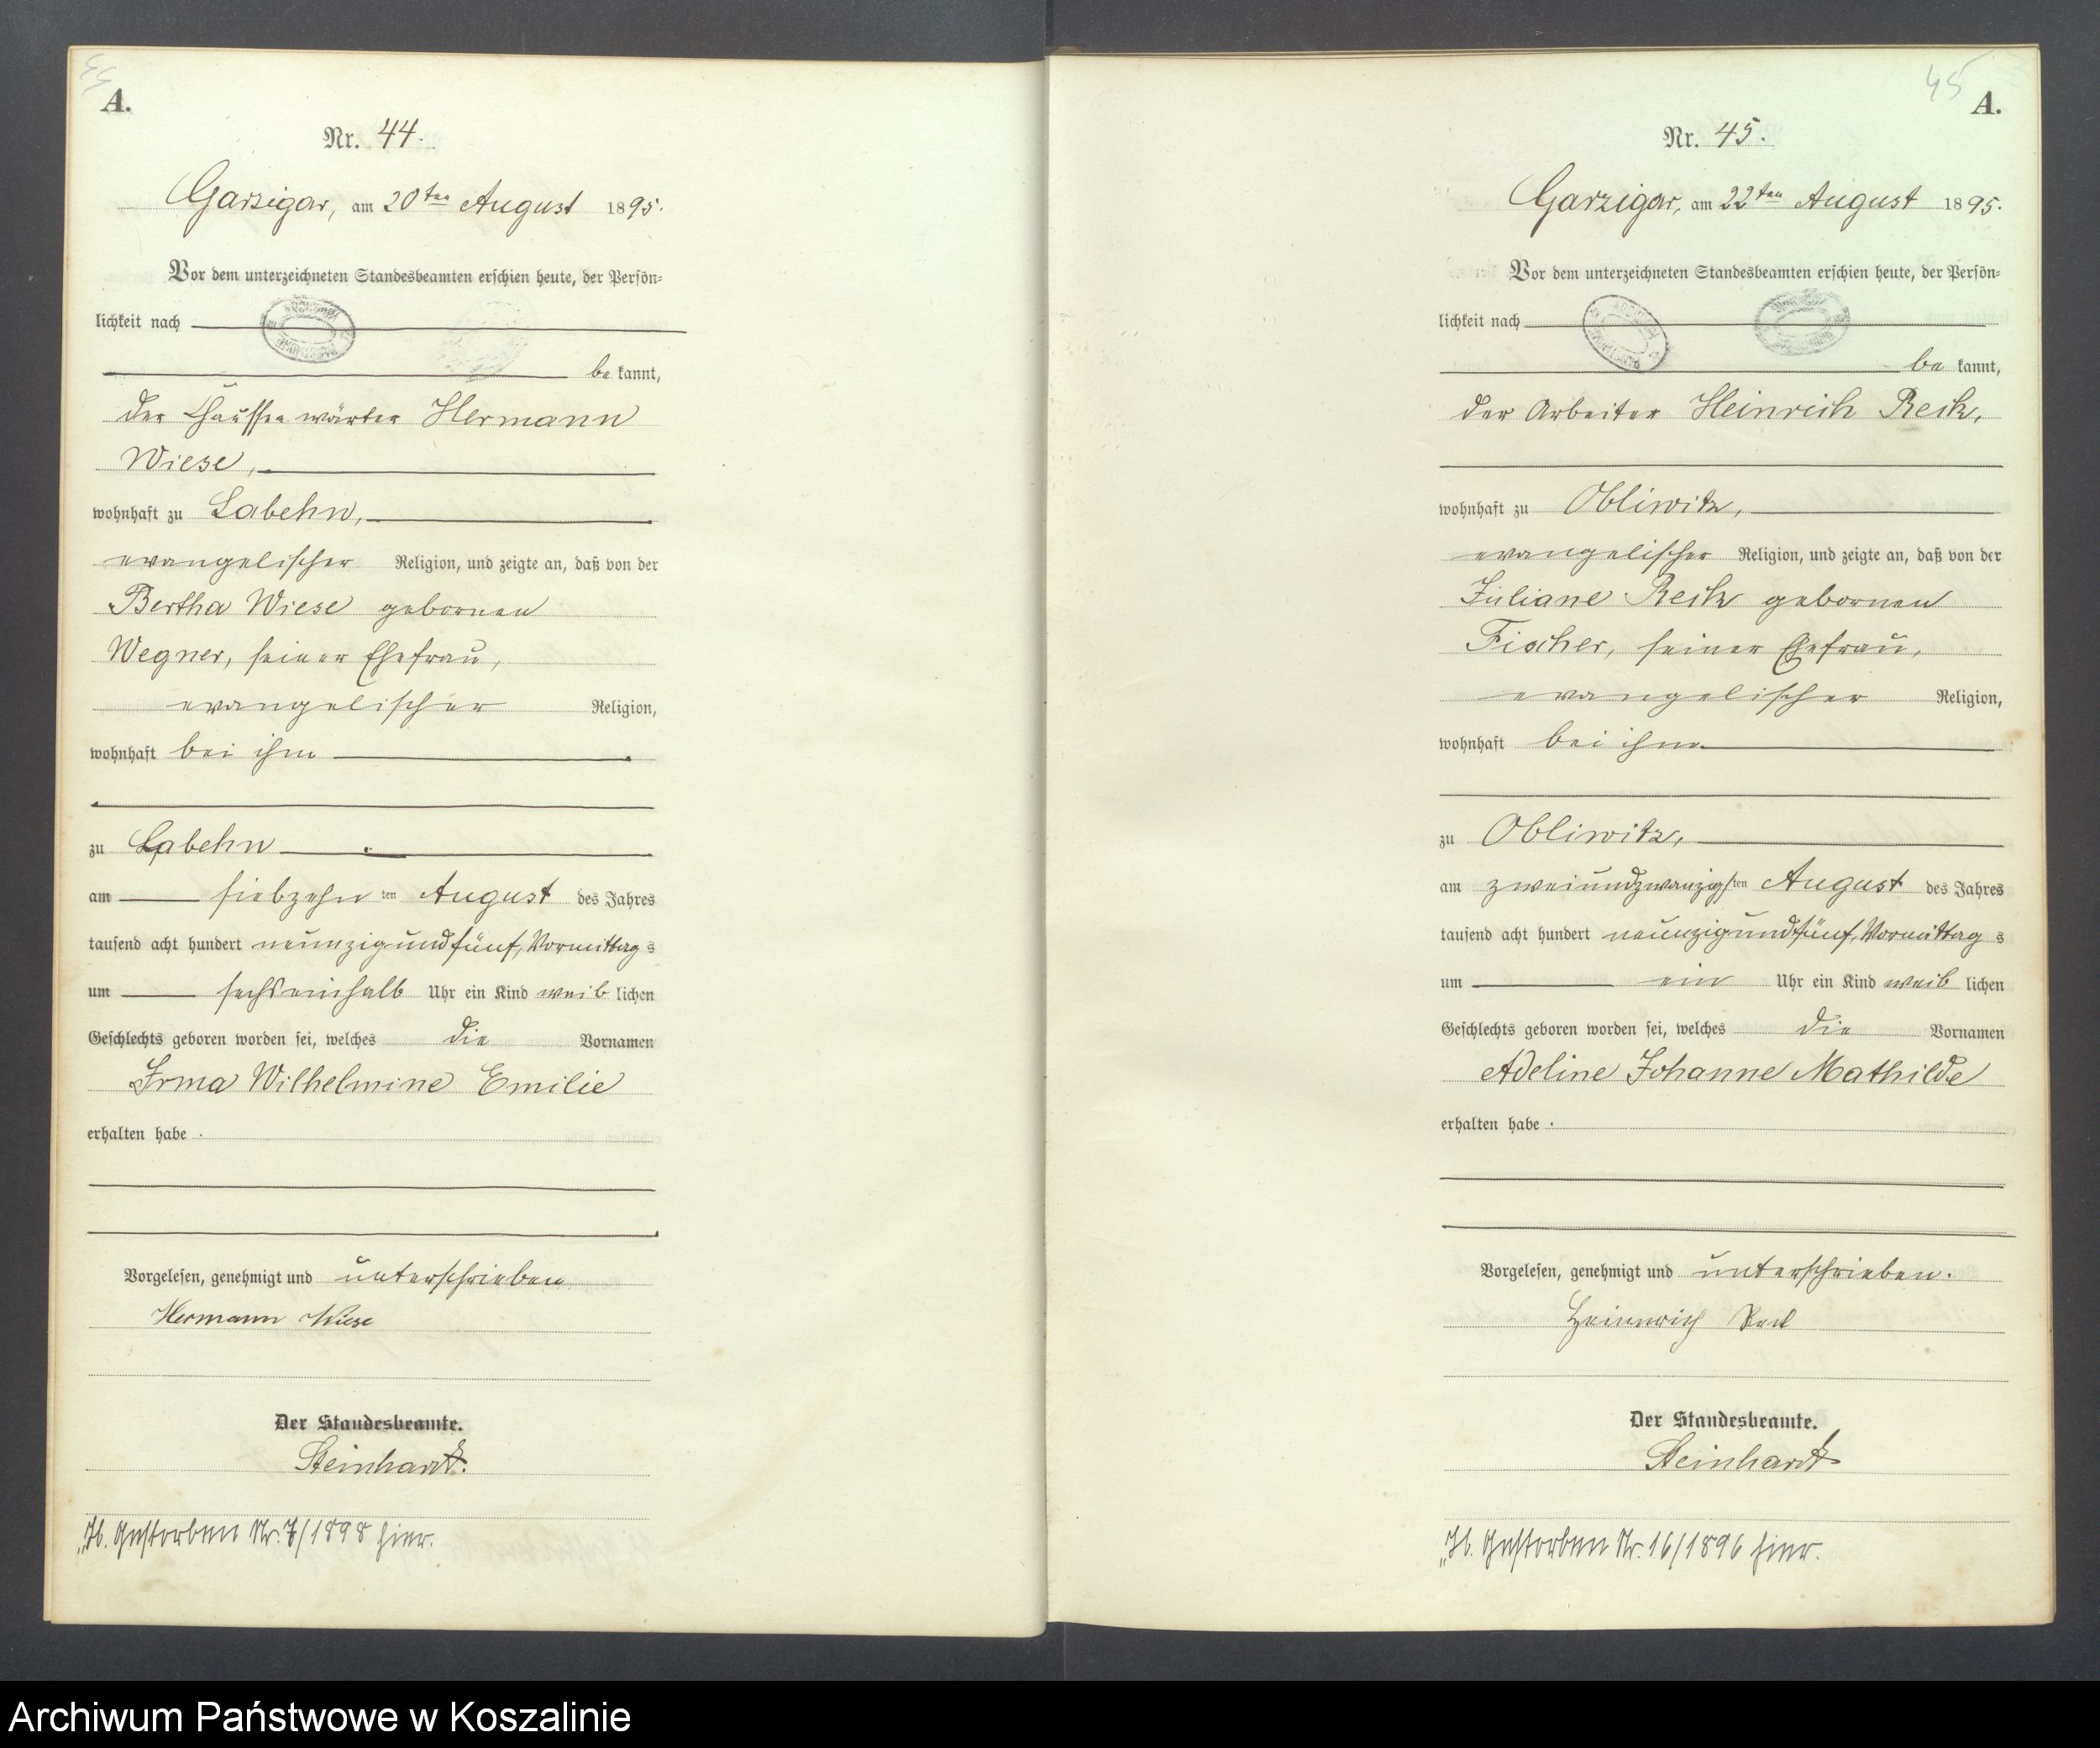 44
A.
Nr. 44.
Garzigar, am 20ten August 1895.
Vor dem unterzeichneten Standesbeamten erschien heute, der Persön-
lichkeit nach
be kannt,
der Chausseewärter Hermann
Wiese,
wohnhaft zu Labehn,
evangelischer Religion, und zeigte an, daß von der
Bertha Wiese gebornen
Wegner, seiner Ehefrau,
evangelischer Religion,
wohnhaft bei ihm
zu Labehn
am siebzehn ten August des Jahres
tausend acht hundert neunzig und fünf, Vormittag s
um sechseinhalb Uhr ein Kind weib lichen
Geschlechts geboren worden sei, welches die Vornamen
Irma Wilhelmine Emilie
erhalten habe.
Vorgelesen, genehmigt und unterschrieben
Hermann Wiese
Der Standesbeamte.
Steinhardt.
Gestorben Nr. 7/1898 hier.
45
A.
Nr. 45.
Garzigar, am 22ten August 1895.
Vor dem unterzeichneten Standesbeamten erschien heute, der Persön-
lichkeit nach
be kannt,
der Arbeiter Heinrich Reck,
wohnhaft zu Obliwitz,
evangelischer Religion, und zeigte an, daß von der
Juliane Reck gebornen
Fischer, seiner Ehefrau,
evangelischer Religion,
wohnhaft bei ihm
zu Obliwitz,
am zweiundzwanzigsten August des Jahres
tausend acht hundert neunzig und fünf, Vormittag s
um ein Uhr ein Kind weib lichen
Geschlechts geboren worden sei, welches die Vornamen
Adeline Johanne Mathilde
erhalten habe.
Vorgelesen, genehmigt und unterschrieben.
Heinrich Reck
Der Standesbeamte.
Steinhardt
Gestorben Nr. 16/1896 hier.
Archiwum Państwowe w Koszalinie